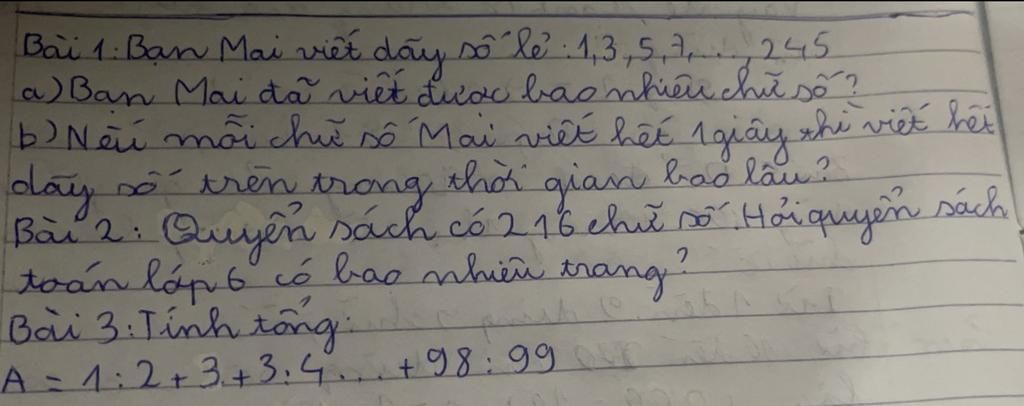 Bài 1: Bạn Mai viết dãy số lẻ: 1,3,5,7,...,245
a) Bạn Mai đã viết được bao nhiêu chữ số?
b) Nếu mỗi chữ số Mai viết hết 1 giây thì viết hết
dãy số trên trong thời gian bao lâu?
Bài 2: Quyển sách có 216 chữ số. Hỏi quyển sách
toán lớp 6 có bao nhiêu trang?
Bài 3: Tính tổng:
A = 1:2+3+3:4...+98:99